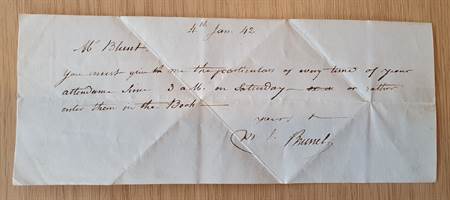 4th Jan 42
Mr Blunt
You must give me the particulars of every time of your
attendance since 3 a.M. on Saturday or rather
enter them in the Book
yours
Brunel